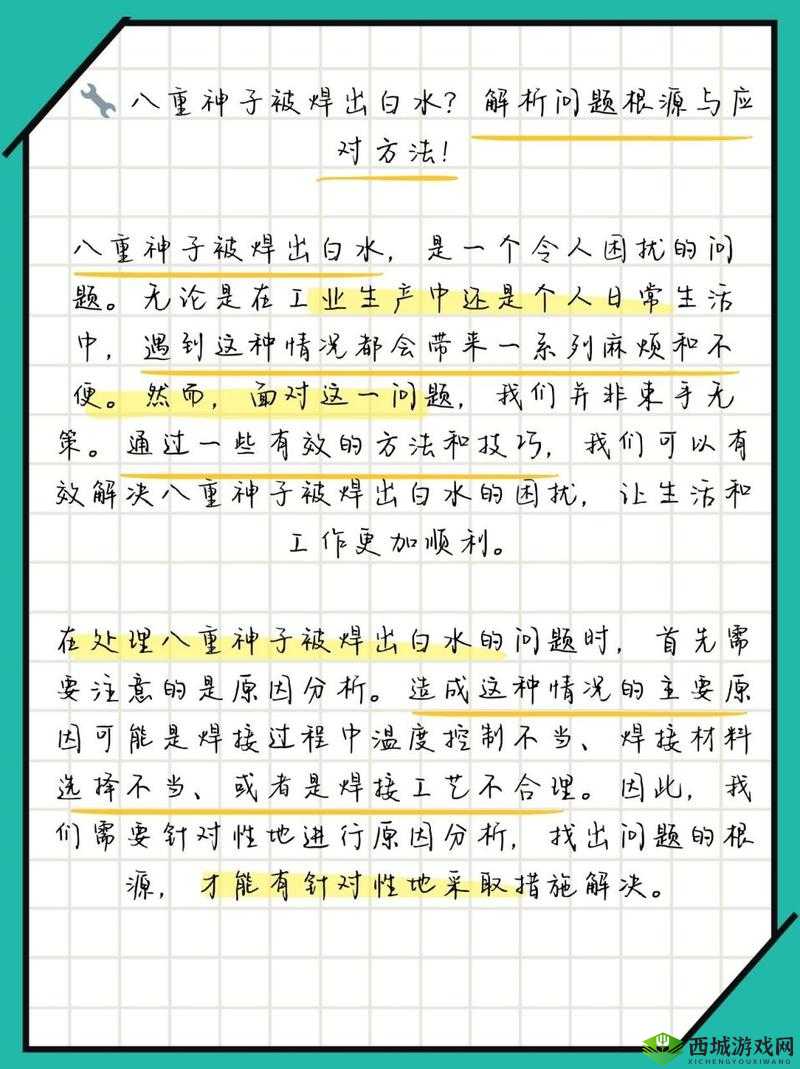 八重神子被焊出白水？解析问题根源与应
对方法！
八重神子被焊出白水，是一个令人困扰的问
题。无论是在工业生产中还是个人日常生活
中，遇到这种情况都会带来一系列麻烦和不
便。然而，面对这一问题，我们并非束手无
策。通过一些有效的方法和技巧，我们可以有
效解决八重神子被焊出白水的困扰，让生活和
工作更加顺利。
在处理八重神子被焊出白水的问题时，首先需
要注意的是原因分析。造成这种情况的主要原
因可能是焊接过程中温度控制不当、焊接材料
选择不当、或者是焊接工艺不合理。因此，我
们需要针对性地进行原因分析，找出问题的根
源，才能有针对性地采取措施解决。
西城游戏网
XICHENGYOUXIWANG